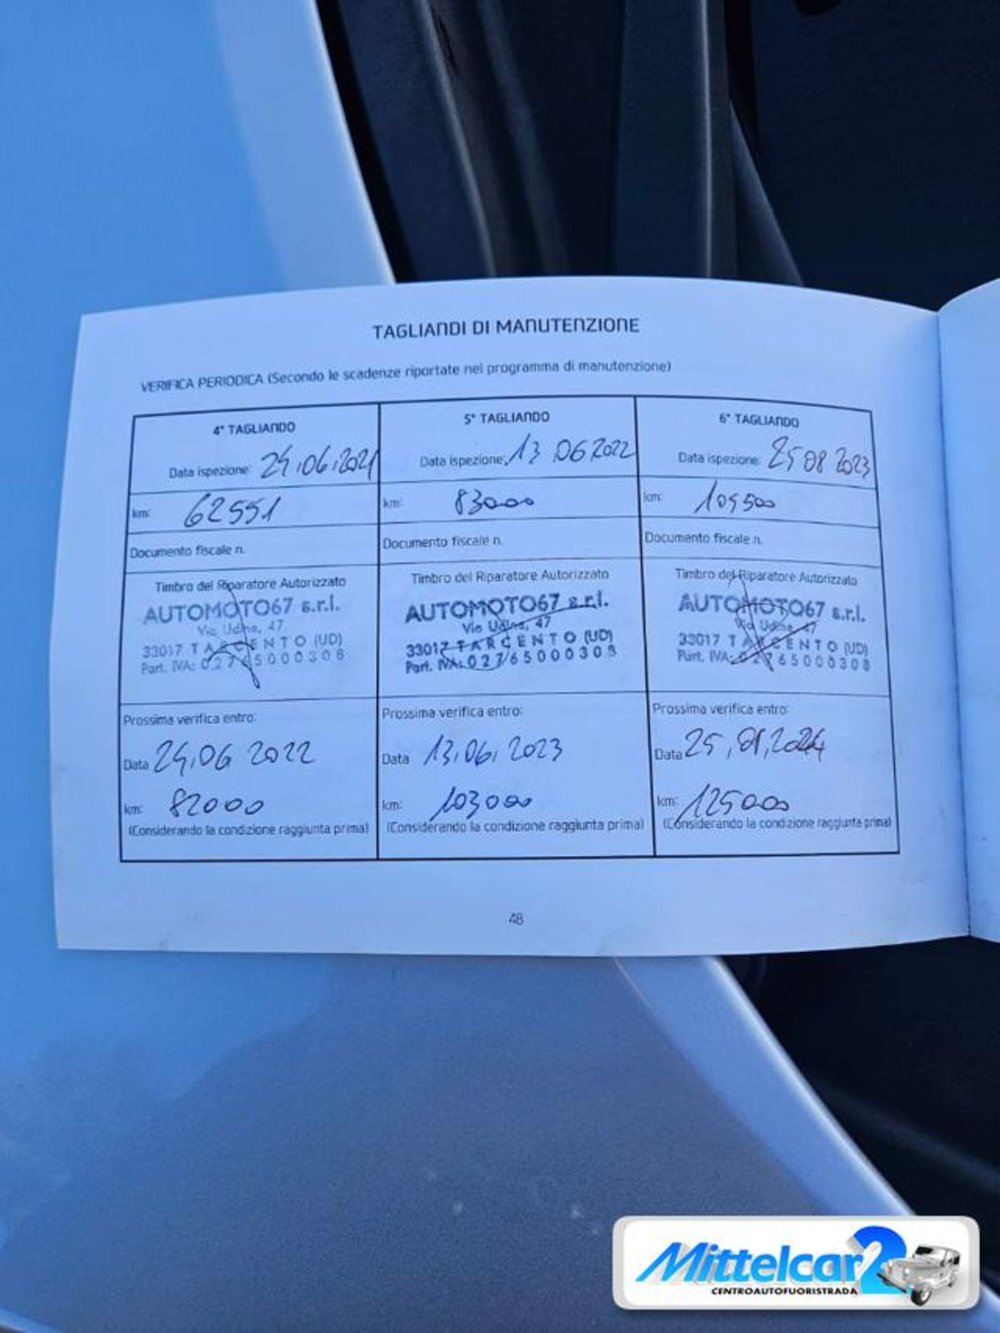 TAGLIANDI DI MANUTENZIONE
VERIFICA PERIODICA (Secondo le scadenze riportate nel programma di manutenzione)
4° TAGLIANDO
Data ispezione: 24.06.2021
km: 62551
Documento fiscale n.
Timbro del Riparatore Autorizzato
AUTOMOTO67 s.r.l.
Via Udine, 47
33017 TARCENTO (UD)
Part. IVA: 02765000308
Prossima verifica entro:
Data 24,06 2022
km: 82000
(Considerando la condizione raggiunta prima)
5° TAGLIANDO
Data ispezione: 13 06 2022
km: 83000
Documento fiscale n.
Timbro del Riparatore Autorizzato
AUTOMOTO67 s.r.l.
Via Udine, 47
33017 TARCENTO (UD)
Part. IVA: 02765000308
Prossima verifica entro:
Data 13,06, 2023
km: 103000
(Considerando la condizione raggiunta prima)
6° TAGLIANDO
Data ispezione: 25 08 2023
km: 105500
Documento fiscale n.
Timbro del Riparatore Autorizzato
AUTOMOTO67 s.r.l.
Via Udine, 47
33017 TARCENTO (UD)
Part. IVA: 02765000308
Prossima verifica entro:
Data
km: 125000
(Considerando la condizione raggiunta prima)
48
Mittelcar2
CENTROAUTOFUORISTRADA